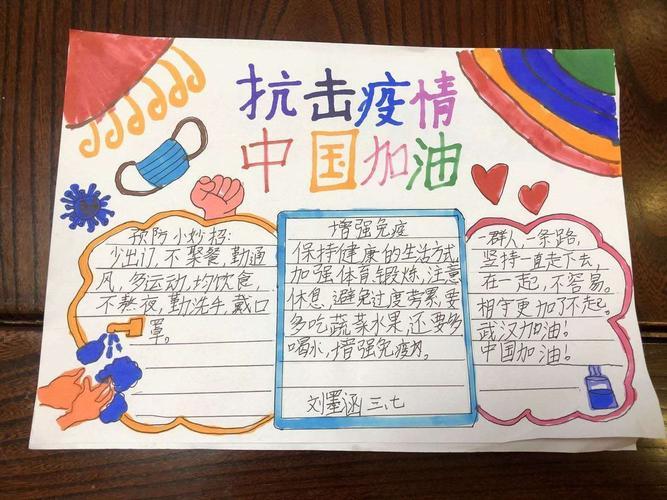 抗击疫情
中国加油
预防小妙招:
少出门,不聚餐,勤通
风,多运动,均饮食,
不熬夜,勤洗手,戴口
罩。
增强免疫
保持健康的生活方式,
加强体育锻炼,注意
休息,避免过度劳累,要
多吃蔬菜水果,还要多
喝水,增强免疫力。
刘墨涵 三、七
一群人,一条路,
坚持一直走下去,
在一起,不容易。
相守更加了不起。
武汉加油!
中国加油!